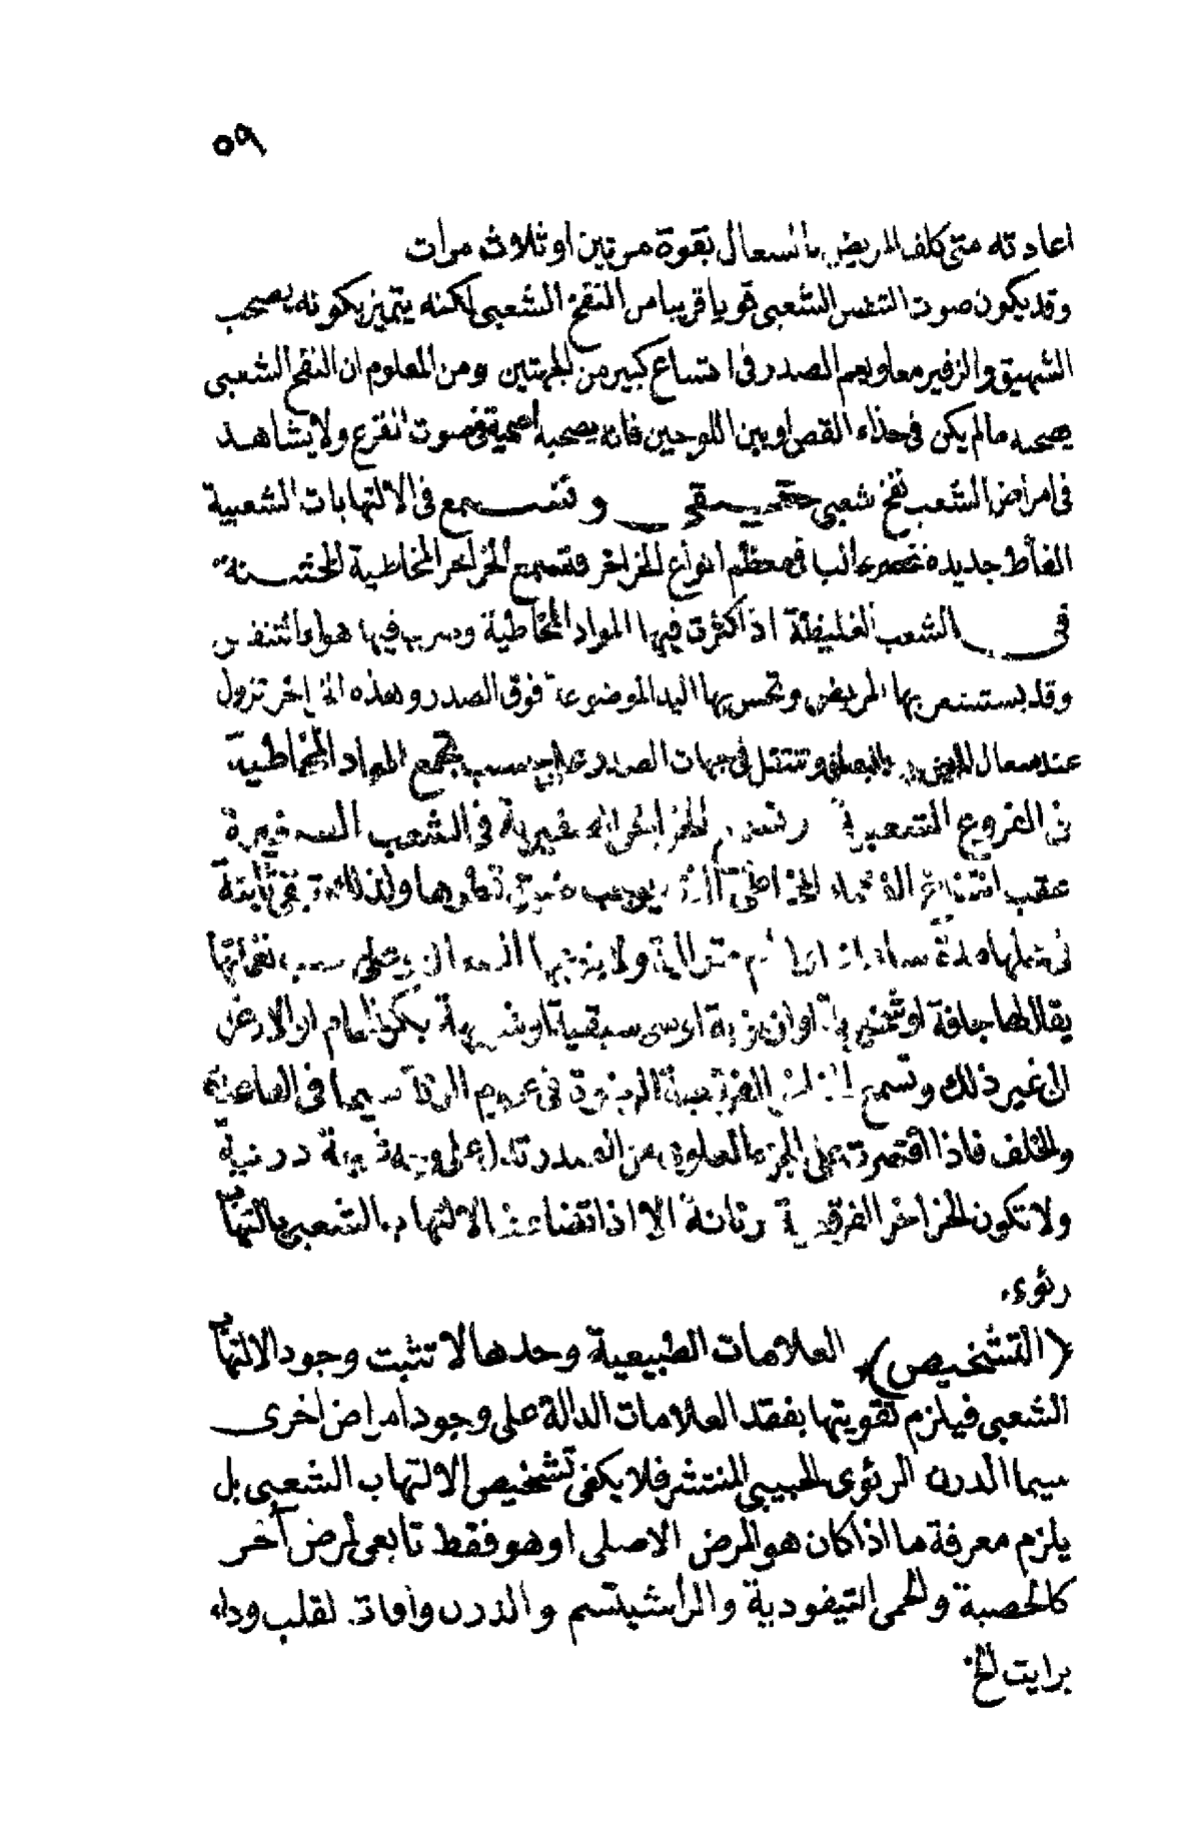 ٥٩
اعادته متى كلف المريض بالسعال بقوة مرتين او ثلاث مرات
وقد يكون صوت التنفس الشعبى قويا قريبا من النفخ الشعبى لكنه يتميز بكونه يصحب
الشهيق والزفير معا ويعم الصدر فى اتساع كبير من الجهتين ومن المعلوم ان النفخ الشعبى
يصحبه مالم يكن فى حذاء القص او بين اللوحين فانه يصحبه اصمية فى صوت القرع ولا يشاهد
فى امراض الشعب نفخ شعبى حقيقى وتسمع فى الالتهابات الشعبية
الغاط جديدة تنحصر غالبا فى معظم انواع الخراخر فتسمع الخراخر المخاطية الخشنة
فى الشعب الغليظة اذا كثرت فيها المواد المخاطية وسرب فيها هواء التنفس
وقد يستشعر بها المريض وتحس بها اليد الموضوعة فوق الصدر وهذه الخراخر تزول
عند سعال المريض وتنتقل فى جهات الصدر على حسب تجمع المواد المخاطية
فى الفروع الشعبية الخراخر فى الشعب الصغيرة
عقب انتفاخ الغشاء المخاطى يوجب ولذلك تبقى ثابتة
فى محلها مدة ساعات متوالية ولا يغيرها السعال وعلى حسب نغماتها
يقال لها جافة او شخيرية او رنانة او موسيقية او كحمام او الارغن
الى غير ذلك وتسمع الفرقعية فى عموم الرئة سيما فى القاعدة
والخلف فاذا اقتصرت على الجزء العلوى من الصدر تدل على درنية
ولا تكون الخراخر الفرقعية رنانة الا اذا تضاعف الالتهاب الشعبى بالتهاب
رئوى.
(التشخيص) العلامات الطبيعية وحدها لا تثبت وجود الالتهاب
الشعبى فيلزم تقويتها بفقد العلامات الدالة على وجود امراض اخرى
سيما الدرن الرئوى الحبيبى المنتشر فلا يكفى تشخيص الالتهاب الشعبى بل
يلزم معرفة ما اذا كان هو المرض الاصلى او هو فقط تابعى لمرض آخر
كالحصبة والحمى التيفودية والراشيتسم والدرن وآفات القلب وداء
برايت الخ